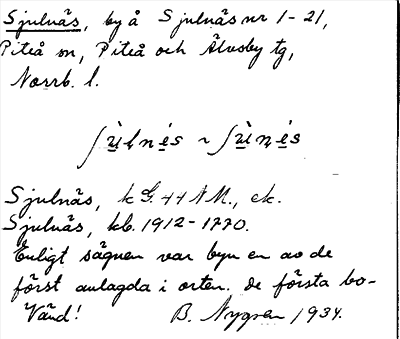 Sjulnäs, by å Sjulnäs nr 1-21,
Piteå sn, Piteå och Älvsby tg,
Norrb. l.
ʃu̱̇̀lnė̱́s ~ ʃu̱̇̀nė̱́s
Sjulnäs, k G. 44 N M., ek.
Sjulnäs, kb. 1912-1770.
Enligt sägnen var byn en av de
först anlagda i orten. de första bo-
Vänd! B. Nygren 1934.